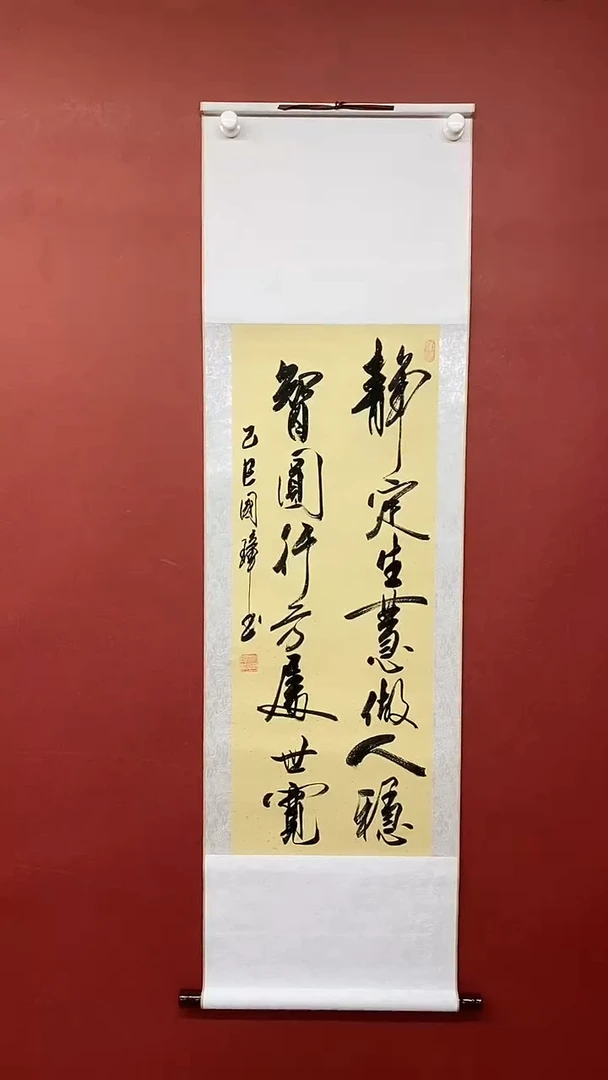 静定生慧做人穩
智圓行方處世寬
乙巳國璋书